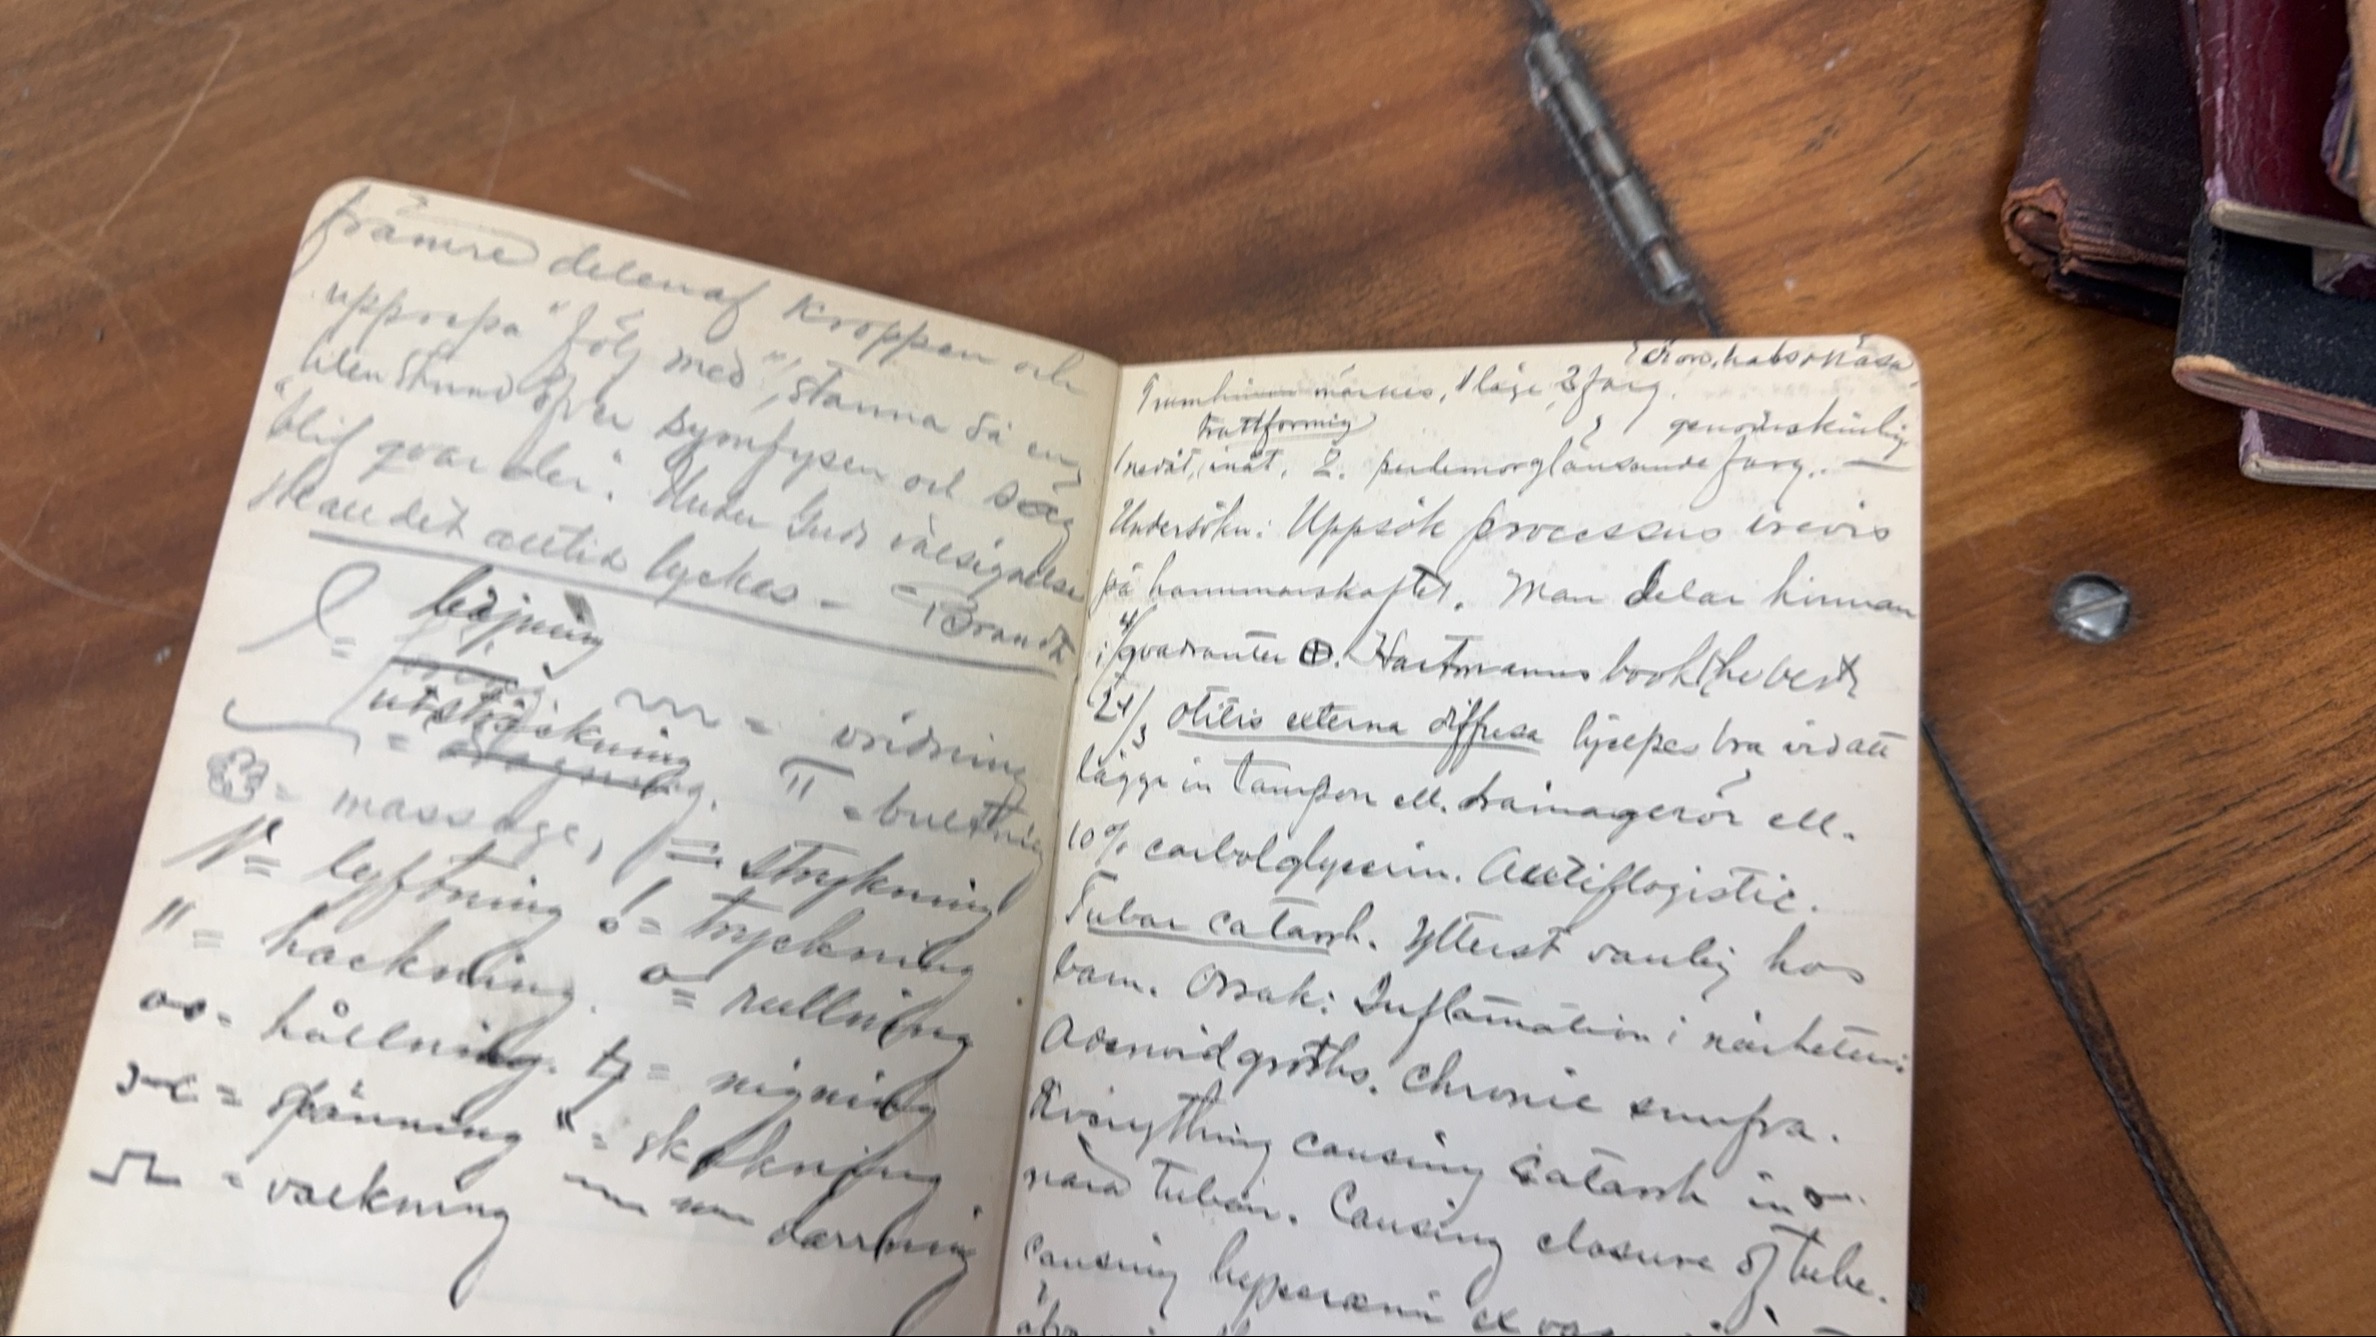 främre delen af kroppen och
upprepa "följ med", stanna så en
liten stund öfver symfysen och säg
"blif qvar der". Under Guds välsignelse
skall det alltid lyckas - Brandt
= böjning
utsträckning = vridning
= dragning. = bultning
= massage, = strykning
= lyftning = tryckning
" = hackning. o = rullning
= hållning. = nigning
= spänning " = skakning
= valkning darrning
märkes, 1 läge, 2 färg.
trattformig genomskinlig
nedåt, inåt. 2. perlemorglänsande färg. —
Undersökn: Uppsök processus brevis
på hammarskaftet. Man delar hinnan
i 4 qvadranter ⊕. Hartmanns book (the best)
24/3 Otitis externa diffusa hjelpes bra vid att
lägga in tampon ell. drainagerör ell.
10% carbolglycerin. Antiflogistic.
Tubar catarrh. Ytterst vanlig hos
barn. Orsak: Inflamation i närheten:
Adenoid groths. Chronic snufva.
Everything causing catarrh in o
nära tuban. Causing closure of tube.
causing hyperæmi ex